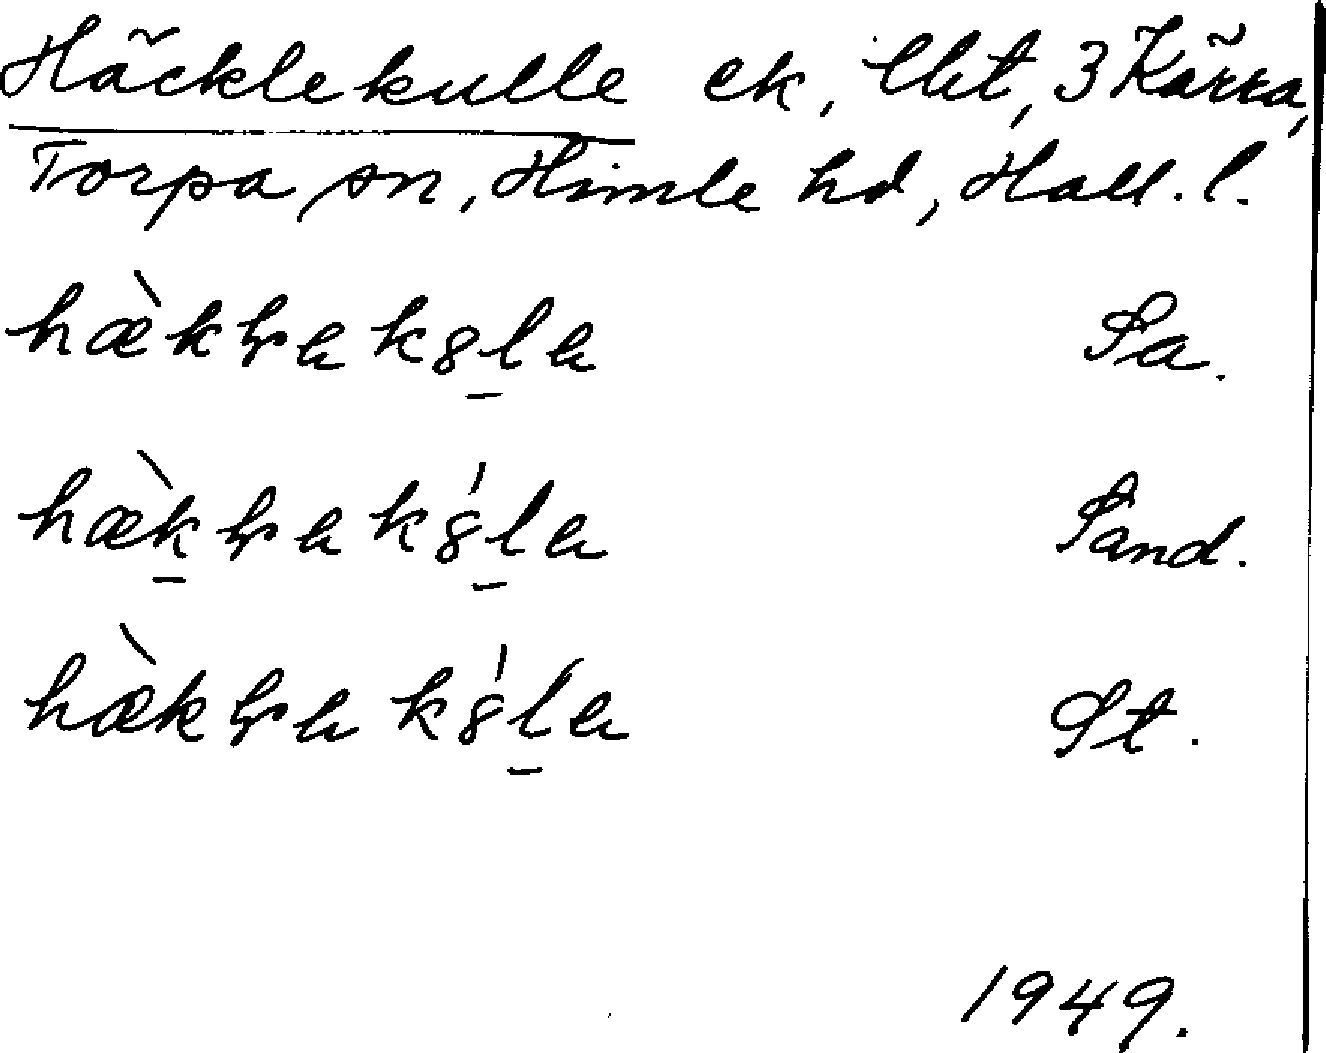 Häcklekulle ek, lht, 3 Kärra,
Torpa sn, Himle hd, Hall. l.
hæ̀kl̥a k8ḻa Sa.
hæ̀ḵl̥a k8́ḻa Sand.
hæ̀kl̥a k8́ḻa St.
1949.